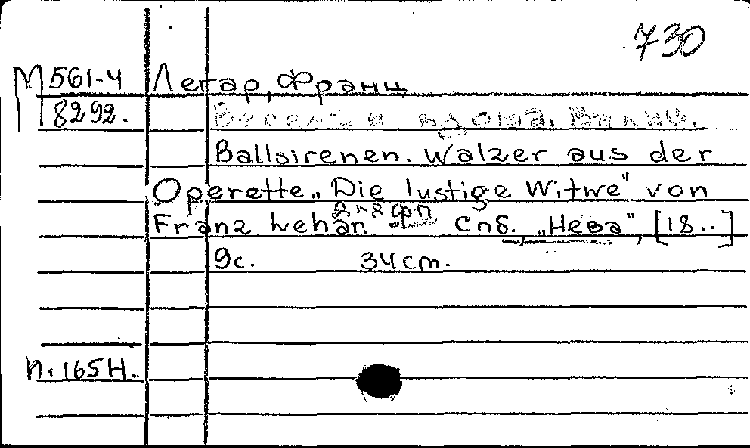 730
М 561-4 Легар, Франц
8292.
Веселая вдова. Вальс.
Ballsirenen. Walzer aus der
Operette „Die lustige Witwe" von
Franz Lehár. Для фп. Спб. „Нева", [18..]
9с. 34 cm.
п. 165Н.